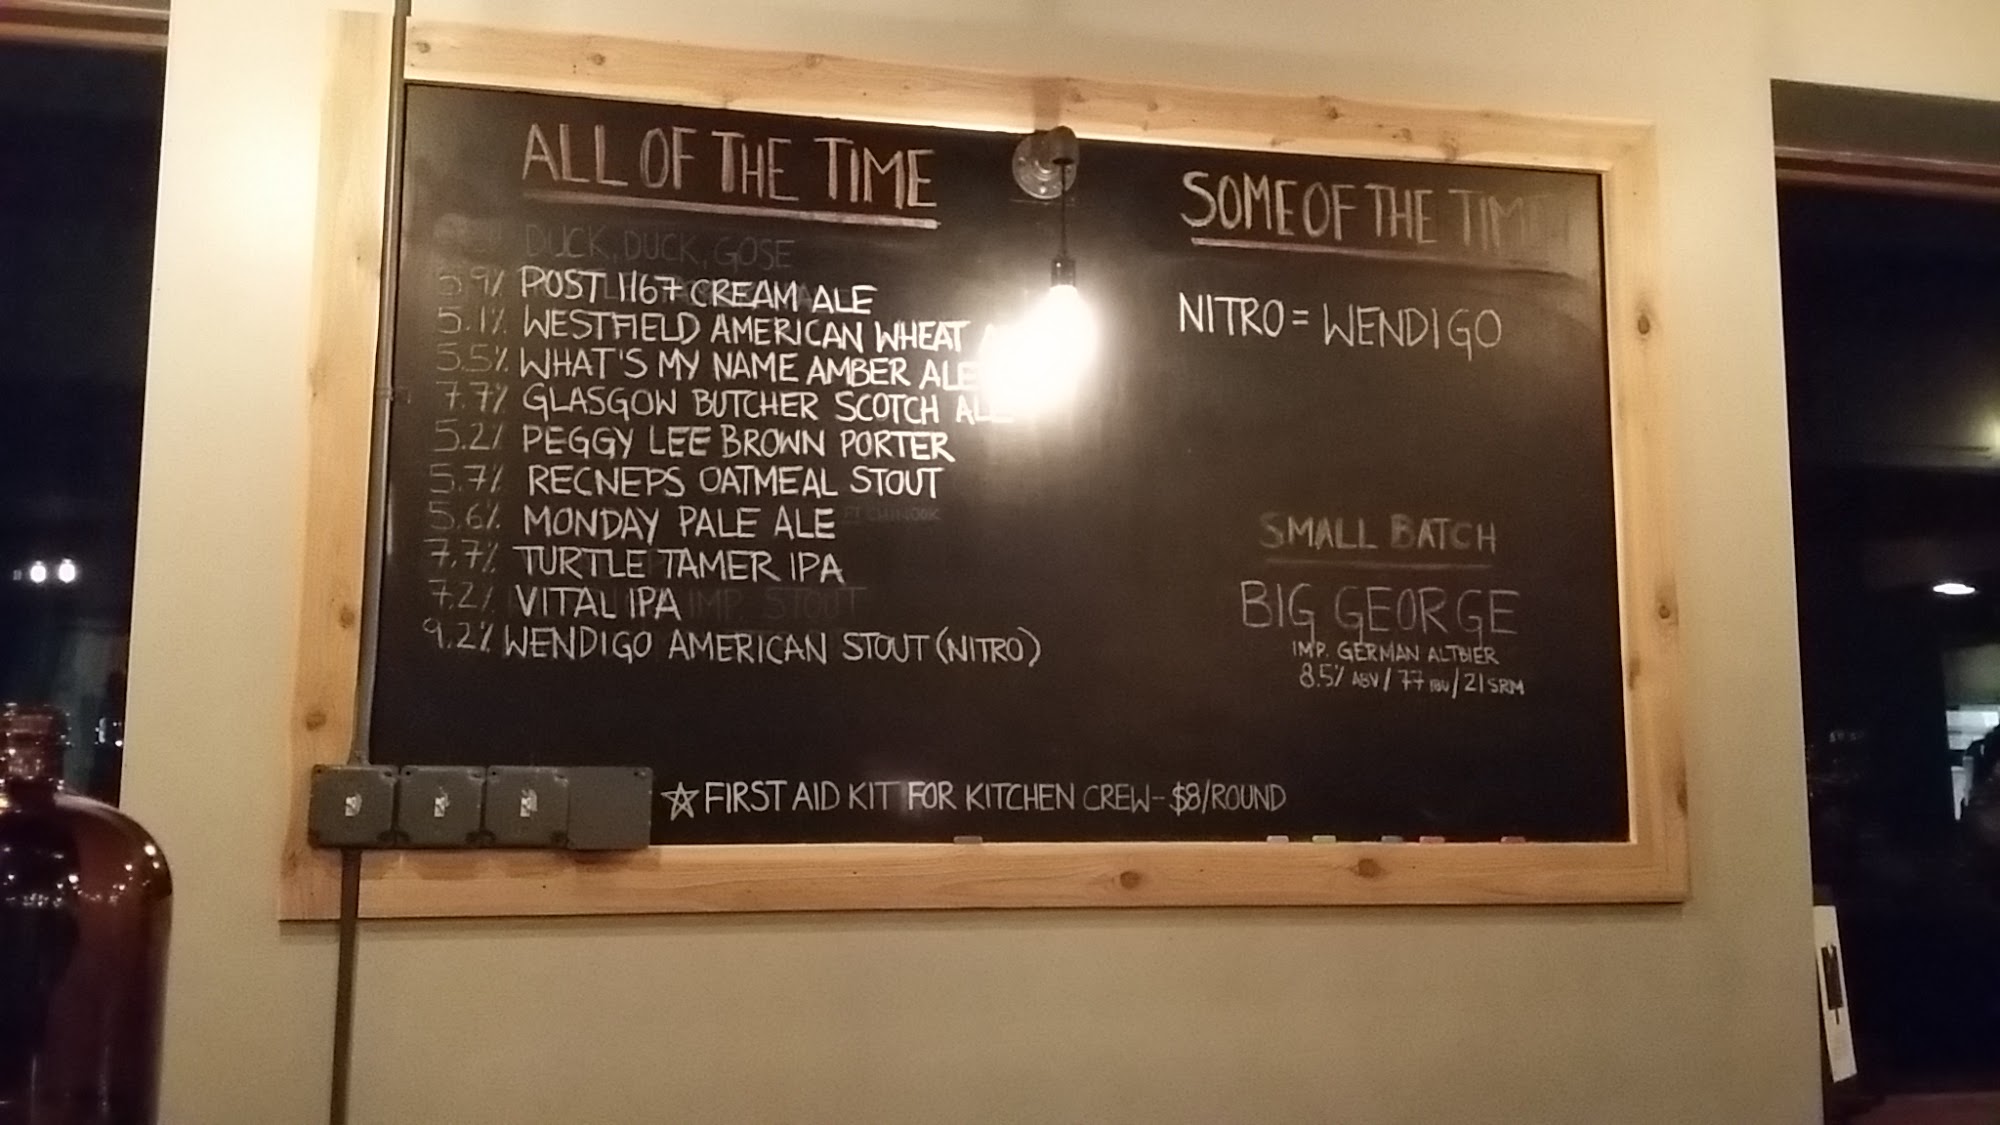 ALL OF THE TIME
DUCK, DUCK, GOSE
5.9% POST 1167 CREAM ALE
5.1% WESTFIELD AMERICAN WHEAT
5.5% WHAT'S MY NAME AMBER ALE
7.7% GLASGOW BUTCHER SCOTCH ALE
5.2% PEGGY LEE BROWN PORTER
5.7% RECNEPS OATMEAL STOUT
5.6% MONDAY PALE ALE
7.7% TURTLE TAMER IPA
7.2% VITAL IPA IMP. STOUT
9.2% WENDIGO AMERICAN STOUT (NITRO)
SOME OF THE TIME
NITRO = WENDIGO
SMALL BATCH
BIG GEORGE
IMP. GERMAN ALTBIER
8.5% ABV / 77 IBU / 21 SRM
☆ FIRST AID KIT FOR KITCHEN CREW - $8/ROUND